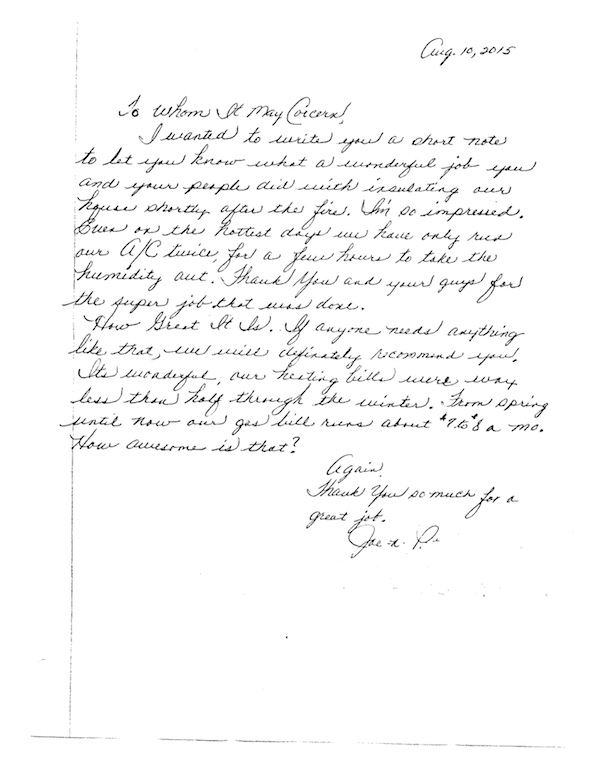 Aug. 10, 2015
To Whom It May Cocern,
I wanted to write you a short note
to let you know what a wonderful job you
and your people did with insulating our
house shortly after the fire. I'm so impressed.
Even on the hottest days we have only run
our A/C twice, for a few hours to take the
humidity out. Thank You and your guys for
the super job that was done.
How Great It Is. If anyone needs anything
like that, we will definately recommend you.
Its wonderful, our heating bills were way
less than half through the winter. From spring
until now our gas bill runs about $7 to $8 a mo.
How awesome is that?
Again,
Thank You so much for a
great job.
Joe n. P.